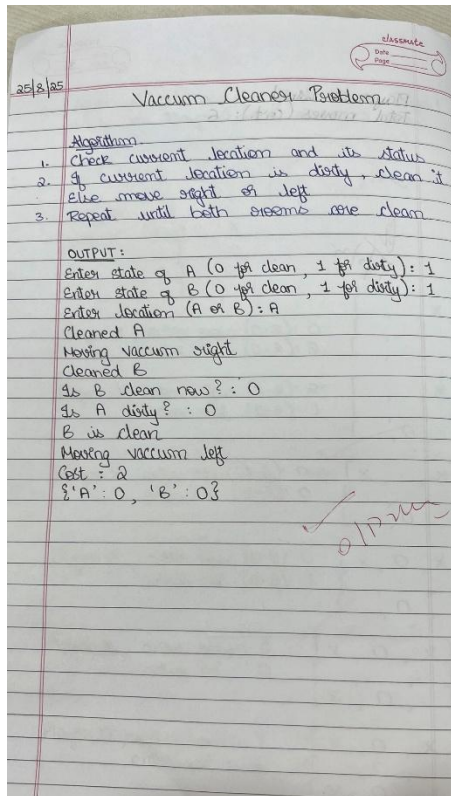 classmate
Date
Page
25/8/25
Vaccum Cleaner Problem
Algorithm
1. Check current location and its status
2. If current location is dirty, clean it
Else move right or left
3. Repeat until both rooms are clean
OUTPUT:
Enter state of A (0 for clean, 1 for dirty): 1
Enter state of B (0 for clean, 1 for dirty): 1
Enter location (A or B): A
Cleaned A
Moving vaccum right
Cleaned B
Is B clean now? : 0
Is A dirty? : 0
B is clean
Moving vaccum left
Cost : 2
{'A': 0, 'B': 0}